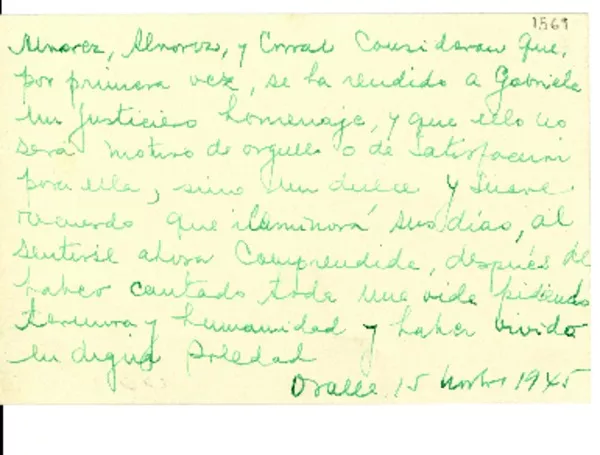 1569
Alvarez, Alvarez, y Corral Consideran que,
por primera vez, se ha rendido a Gabriela
un justiciero homenaje, y que ello no
será motivo de orgullo o de Satisfacción
para ella, sino un dulce y suave
recuerdo que iluminará sus días, al
sentirse ahora Comprendida, después de
haber cantado toda una vida pidiendo
ternura y humanidad y haber vivido
en digna Soledad
Ovalle, 15 Novbre 1945